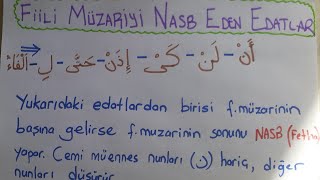 FİİLİ MÜZARİYİ NASB EDEN EDATLAR
أَنْ - لَنْ - كَىْ - إِذَنْ - حَتَّى - لِ - اَلْفَاءُ
Yukarıdaki edatlardan birisi f.müzarinin
başına gelirse f.muzarinin sonunu NASB (Fetha)
yapar. Cemi müennes nunları (ن) hariç, diğer
nunları düşürür.